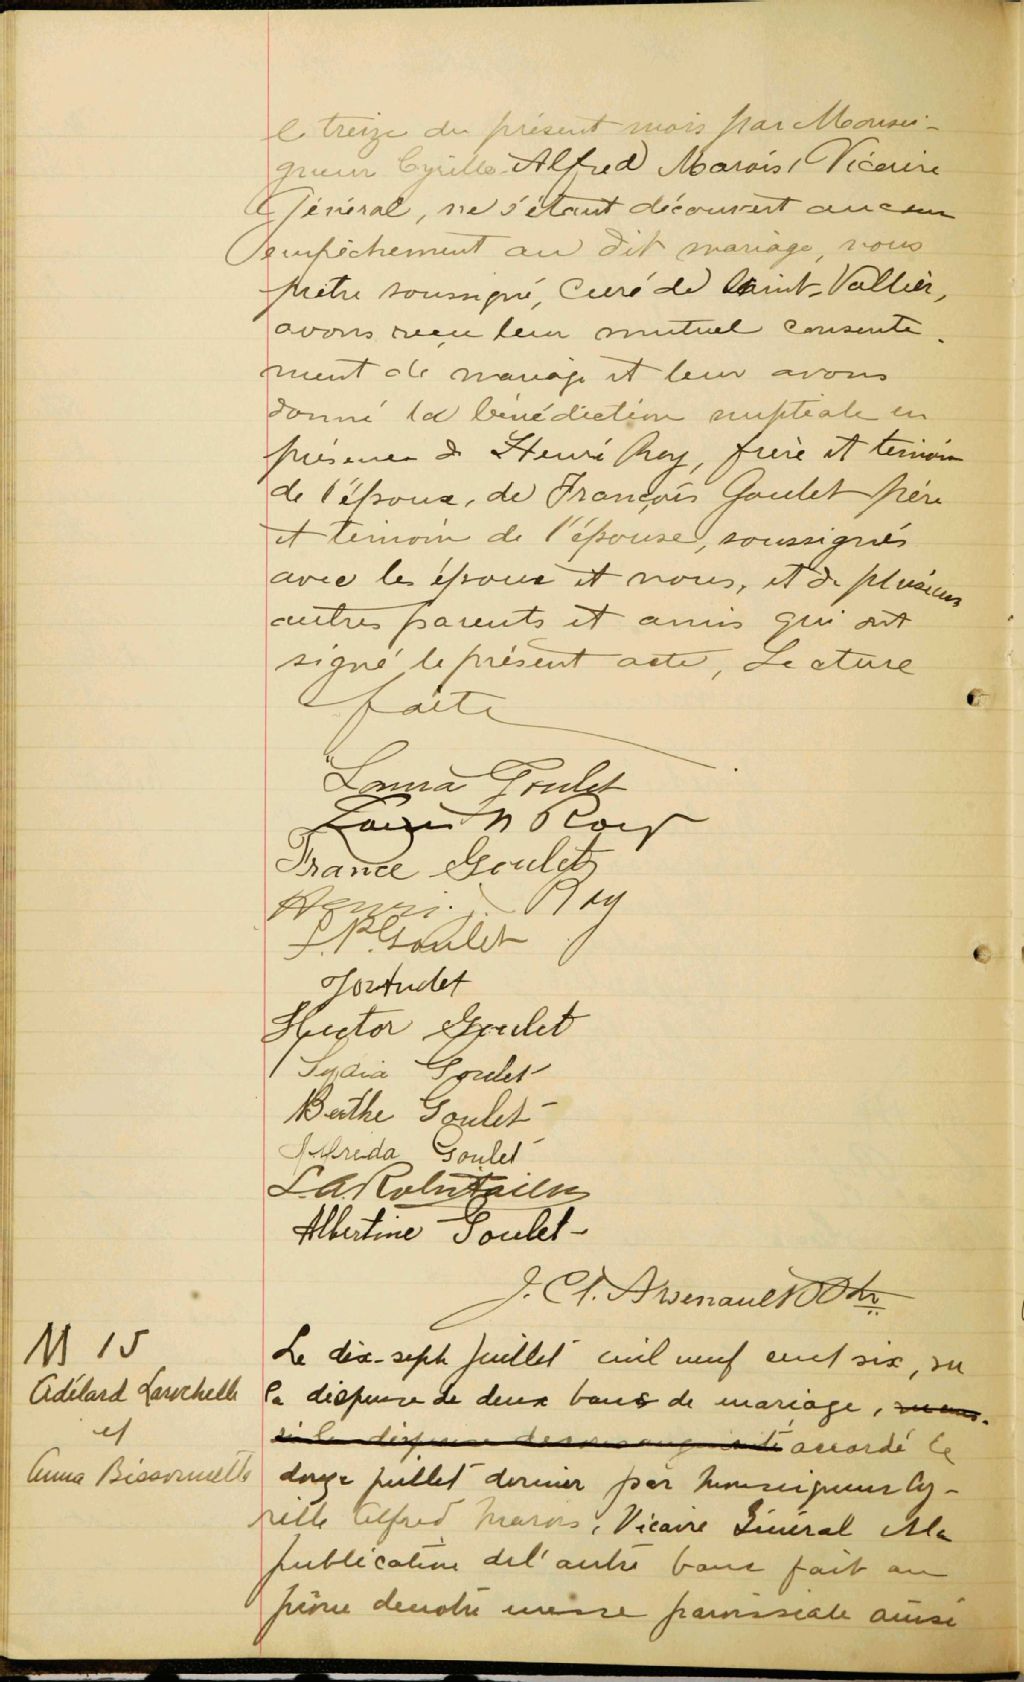 le treize du présent mois par Monsei-
gneur Cyrille Alfred Marois, Vicaire
Général, ne s'étant découvert aucun
empêchement au dit mariage, nous
prêtre soussigné, Curé de Saint-Vallier,
avons reçu leur mutuel consente-
ment de mariage et leur avons
donné la bénédiction nuptiale en
présence de Henri Roy, frère et témoin
de l'époux, de François Goulet père
et témoin de l'épouse, soussignés
avec les époux et nous, et de plusieurs
autres parents et amis qui ont
signé le présent acte, Lecture
faite
Goulet
Louis N Roy
France Goulet
Henri J. Roy
Goulet
Hector Goulet
Lydia Goulet
Berthe Goulet
Alfreda Goulet
L.A. Robitaille
Albertine Goulet
Arsenault Ptr
M 15
Adélard Larochelle
et
Anna Bissonnette
Le dix-sept Juillet mil neuf cent six, vu
la dispense de deux bans de mariage,
accordé le
douze juillet dernier par Monseigneur Cy-
rille Alfred Marois, Vicaire Général et la
publication de l'autre banc fait au
prône de notre messe paroissiale ainsi